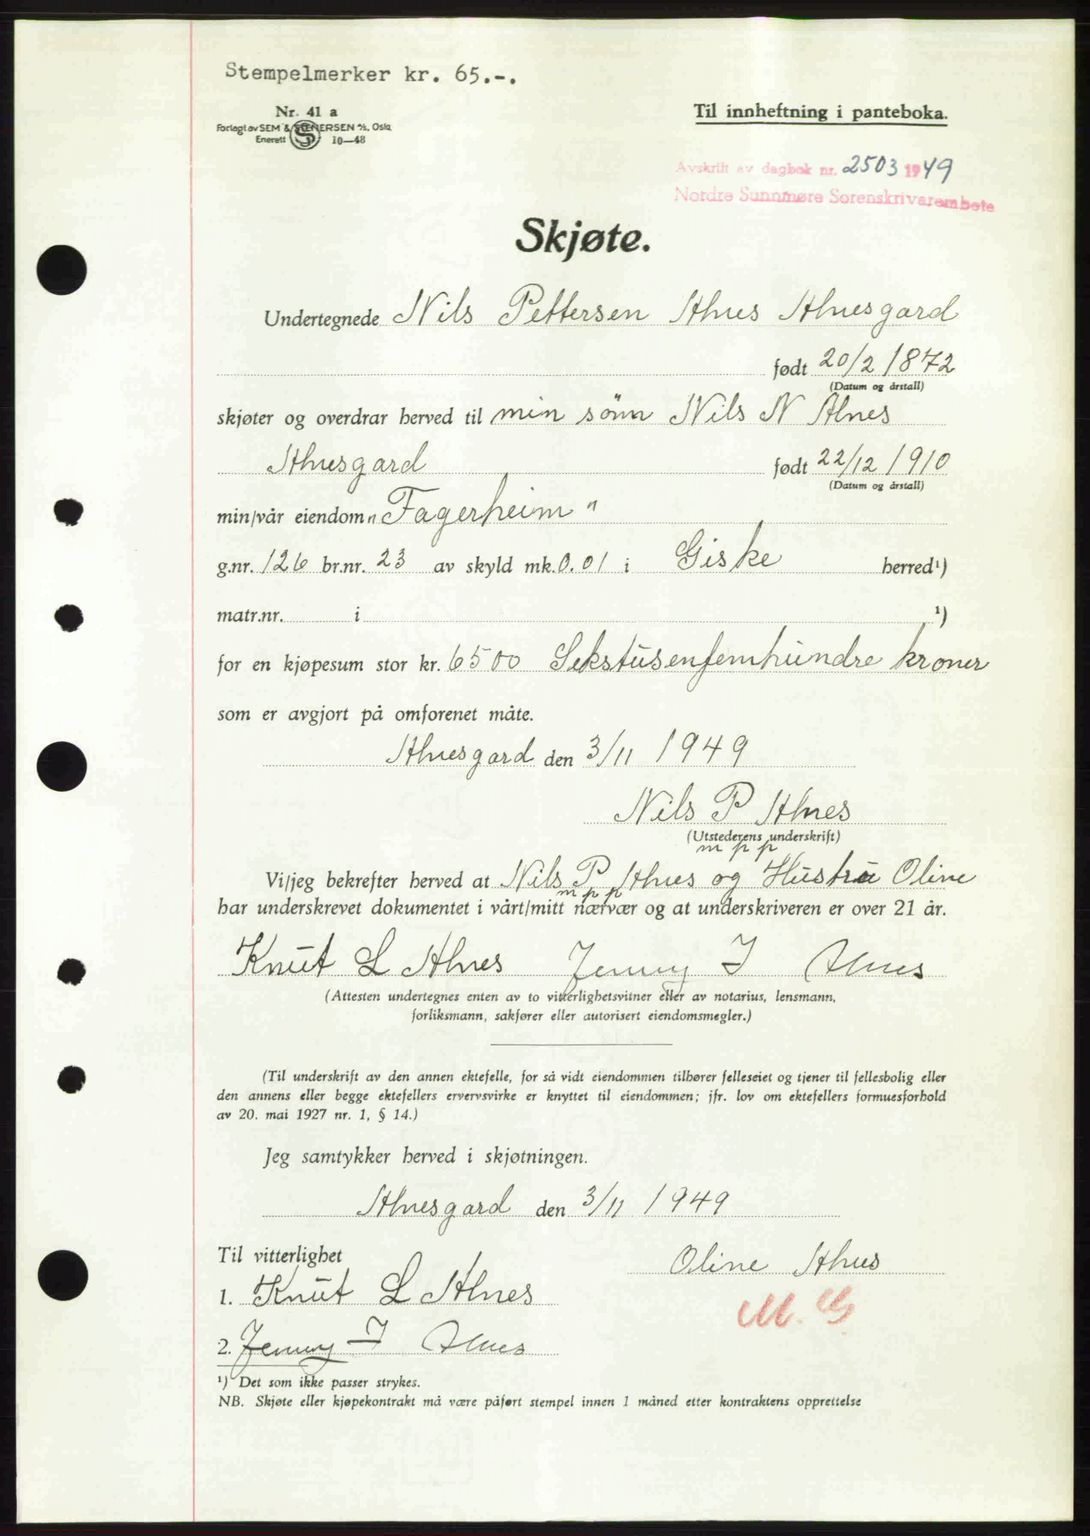 Stempelmerker kr. 65.-.
Nr. 41 a
Forlagt av SEM & STENERSEN A/S, Oslo
Enerett S 10—48
Til innheftning i panteboka.
Avskrift av dagbok nr. 2503 1949
Nordre Sunnmøre Sorenskrivarembete
Skjøte.
Undertegnede Nils Pettersen Alnes Alnesgard
født 20/2 1872
(Datum og årstall)
skjøter og overdrar herved til min sönn Nils N Alnes
Alnesgard født 22/12 1910
(Datum og årstall)
min/vår eiendom „Fagerheim"
g.nr. 126 br.nr. 23 av skyld mk. 0.01 i Giske herred¹)
matr.nr. i ¹)
for en kjøpesum stor kr. 6500 Sekstusenfemhundre kroner
som er avgjort på omforenet måte.
Alnesgard den 3/11 1949
Nils P Alnes
(Utstederens underskrift)
m p p
Vi/jeg bekrefter herved at Nils P Alnes og Hustru Oline
m p p
har underskrevet dokumentet i vårt/mitt nærvær og at underskriveren er over 21 år.
Knut L Alnes Jenny I Alnes
(Attesten undertegnes enten av to vitterlighetsvitner eller av notarius, lensmann,
forliksmann, sakfører eller autorisert eiendomsmegler.)
(Til underskrift av den annen ektefelle, for så vidt eiendommen tilhører felleseiet og tjener til fellesbolig eller
den annens eller begge ektefellers ervervsvirke er knyttet til eiendommen; jfr. lov om ektefellers formuesforhold
av 20. mai 1927 nr. 1, § 14.)
Jeg samtykker herved i skjøtningen.
Alnesgard den 3/11 1949
Til vitterlighet
Oline Alnes
1. Knut L Alnes
M. G
2. Jenny I Alnes
¹) Det som ikke passer strykes.
NB. Skjøte eller kjøpekontrakt må være påført stempel innen 1 måned etter kontraktens opprettelse